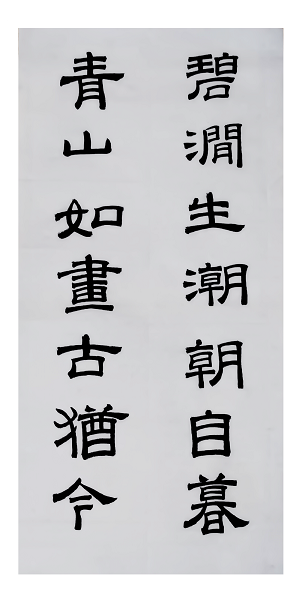 碧澗生潮朝自暮
青山如畫古猶今